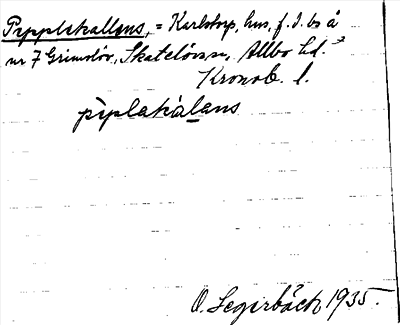 Pipplakallens, = Karlstorp, hus, f. d. bs å
nr 7 Grimslöv, Skatelövs sn, Allbo hd.
Kronob. l.
pìplakàlens
O. Segerbäck 1935.